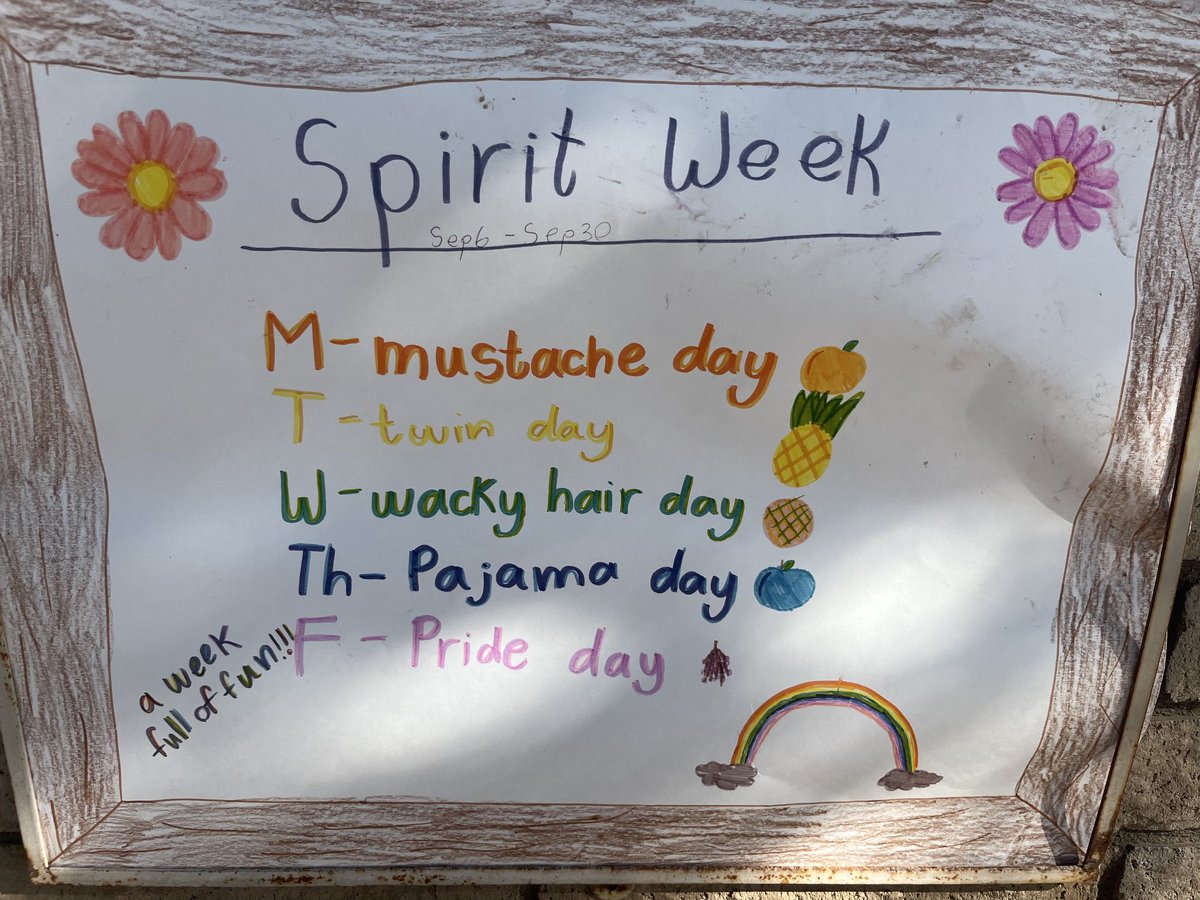 Spirit Week
Sep6 - Sep30
M- mustache day
T - twin day
W - wacky hair day
Th- Pajama day
F - Pride day
a week
full of fun!!!